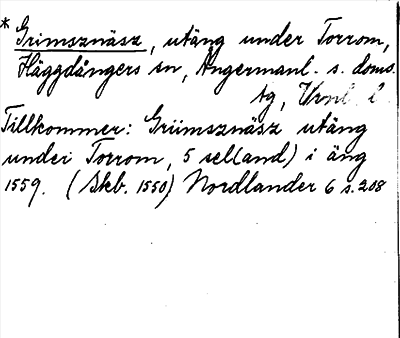 * Grimsznäsz, utäng under Torrom,
Häggdångers sn, Ångermanl. s. doms.
tg, Vrnl. l.
Tillkommer: Griimsznäsz utäng
under Torrom, 5 sel(and) i äng
1559. (Skb. 1550) Nordlander 6 s. 208